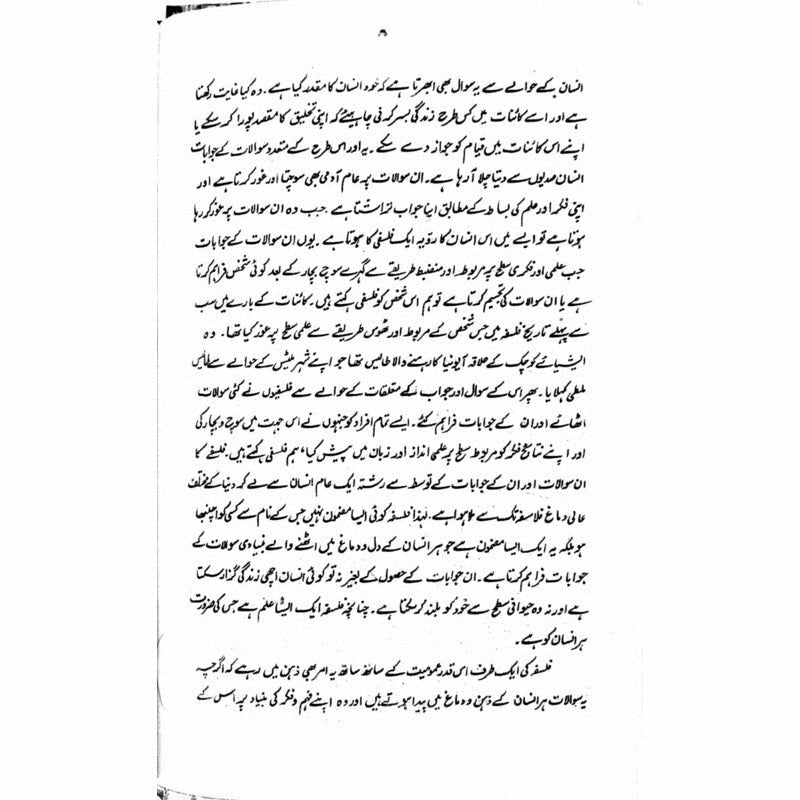 ۸
انسان کے حوالے سے یہ سوال بھی ابھرتا ہے کہ خود انسان کا مقدر کیا ہے۔ وہ کیا غایت رکھتا
ہے اور اسے کائنات میں کس طرح زندگی بسر کرنی چاہیئے کہ اپنی تخلیق کا مقصد پورا کر سکے یا
اپنے اس کائنات میں قیام کو جواز دے سکے۔ یہ اور اس طرح کے متعدد سوالات کے جوابات
انسان صدیوں سے دیتا چلا آ رہا ہے۔ ان سوالات پر عام آدمی بھی سوچتا اور غور کرتا ہے اور
اپنی فکر اور علم کی بساط کے مطابق اپنا جواب تراشتا ہے۔ جب وہ ان سوالات پر غور کر رہا
ہوتا ہے تو ایسے میں اس انسان کا رویہ ایک فلسفی کا ہوتا ہے۔ یوں ان سوالات کے جوابات
جب علمی اور فکری سطح پر مربوط اور منضبط طریقے سے گہرے سوچ بچار کے بعد کوئی شخص فراہم کرتا
ہے یا ان سوالات کی تجسیم کرتا ہے تو ہم اس شخص کو فلسفی کہتے ہیں۔ کائنات کے بارے میں سب
سے پہلے تاریخ فلسفہ میں جس شخص کے مربوط اور ٹھوس طریقے سے علمی سطح پر غور کیا تھا۔ وہ
ایشیائے کوچک کے علاقہ آیونیا کا رہنے والا طالیس تھا جو اپنے شہر ملیٹس کے حوالے سے طالیس
ملطی کہلایا۔ پھر اس کے سوال اور جواب کے متعلقات کے حوالے سے فلسفیوں نے کئی سوالات
اٹھائے اور ان کے جوابات فراہم کئے۔ ایسے تمام افراد کو جنہوں نے اس جہت میں سوچ و بچار کی
اور اپنے نتائج فکر کو مربوط سطح پر علمی انداز اور زبان میں پیش کیا، ہم فلسفی کہتے ہیں۔ فلسفے کا
ان سوالات اور ان کے جوابات کے توسط سے رشتہ ایک عام انسان سے لے کر دنیا کے مختلف
عالی دماغ فلاسفہ تک سے ملا ہوا ہے۔ لہٰذا فلسفہ کوئی ایسا مضمون نہیں جس کے نام سے کسی کو اچنبھا
ہو بلکہ یہ ایک ایسا مضمون ہے جو ہر انسان کے دل و دماغ میں اٹھنے والے بنیادی سوالات کے
جوابات فراہم کرتا ہے۔ ان جوابات کے حصول کے بغیر نہ تو کوئی انسان اچھی زندگی گزار سکتا
ہے اور نہ وہ حیوانی سطح سے خود کو بلند کر سکتا ہے۔ چنانچہ فلسفہ ایک ایسا علم ہے جس کی ضرورت
ہر انسان کو ہے۔
فلسفہ کی ایک طرف اس قدر عمومیت کے ساتھ ساتھ یہ امر بھی ذہن میں رہے کہ اگرچہ
یہ سوالات ہر انسان کے ذہن و دماغ میں پیدا ہوتے ہیں اور وہ اپنے فہم و فکر کی بنیاد پر اس کے